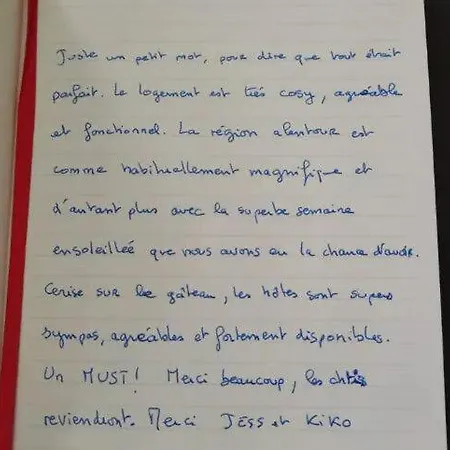 Juste un petit mot, pour dire que tout était
parfait. Le logement est très cosy, agréable
et fonctionnel. La région alentour est
comme habituellement magnifique et
d'autant plus avec la superbe semaine
ensoleillée que nous avons eu la chance d'avoir.
Cerise sur le gâteau, les hôtes sont supers
sympas, agréables et fortement disponibles.
Un MUST! Merci beaucoup, les chtis
reviendront. Merci JESS et KIKO